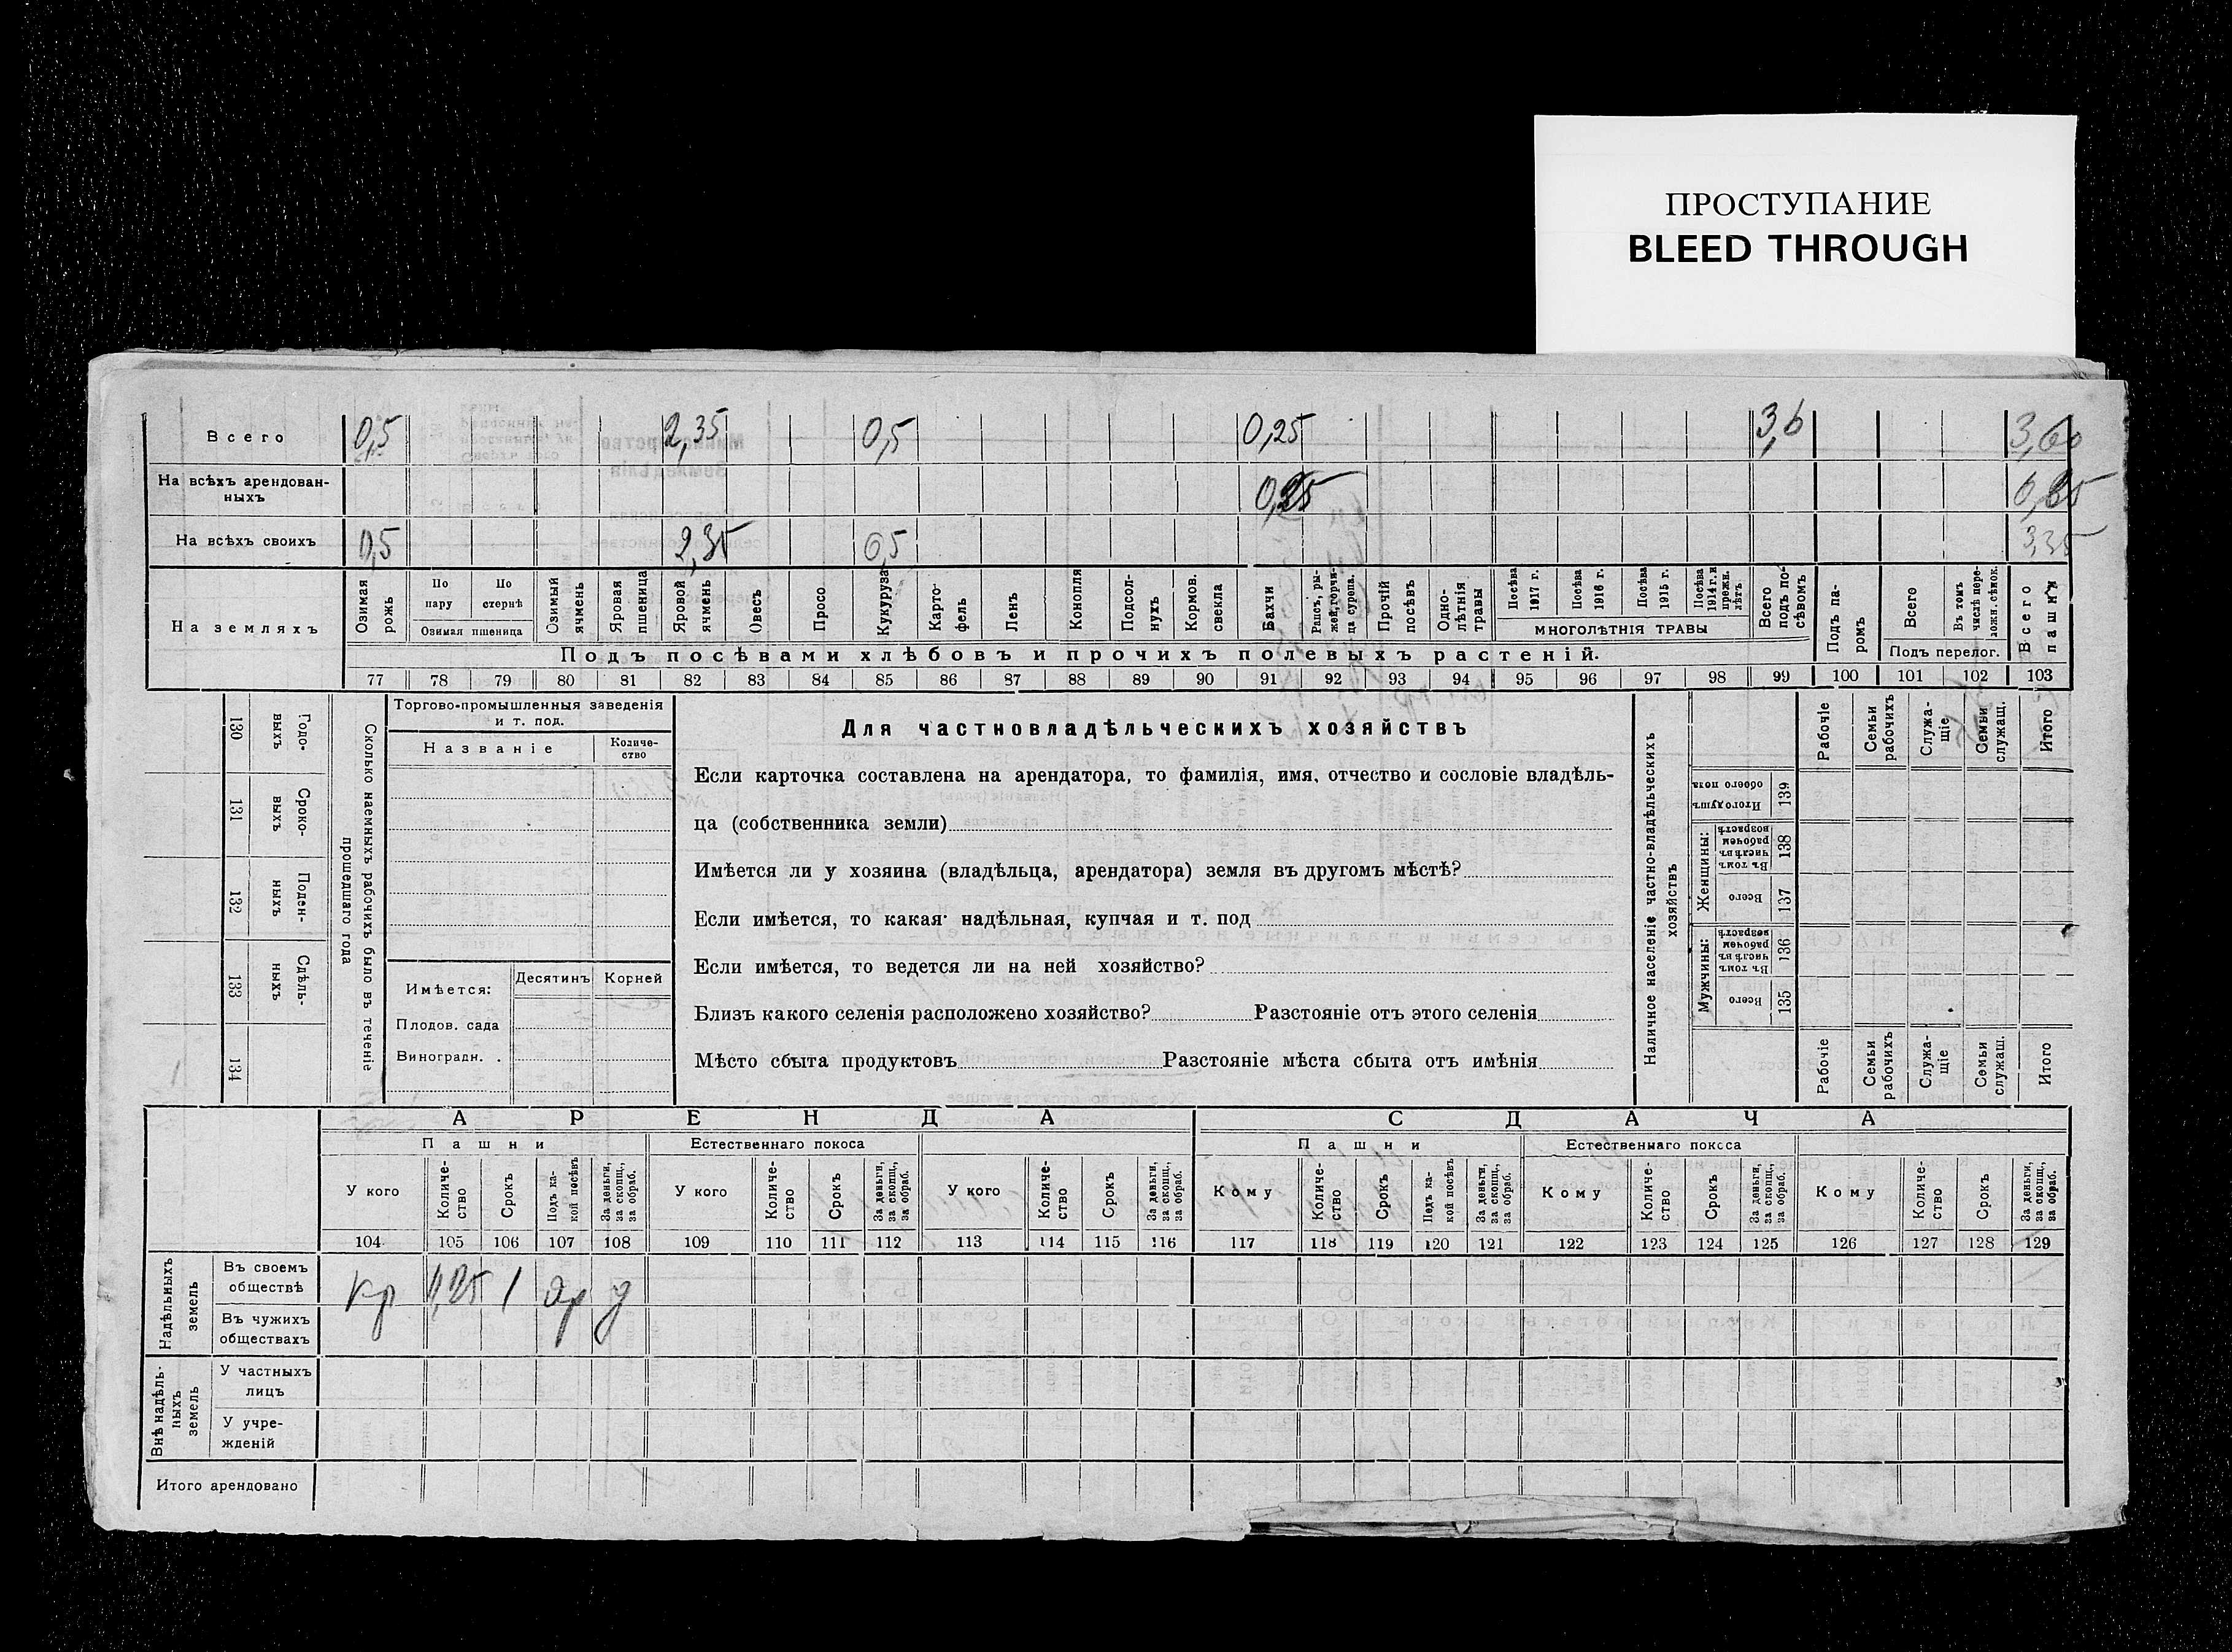 ПРОСТУПАНИЕ
BLEED THROUGH
Всего 0,5 2,35 0,5 0,25 3,6 3,60
На всѣхъ арендован-
ныхъ 0,25 0,25
На всѣхъ своихъ 0,5 2,35 0,5 3,35
На земляхъ
Озимая рожь
По пару
По стернѣ
Озимая пшеница
Озимый ячмень
Яровая пшеница
Яровой ячмень
Овесъ
Просо
Кукуруза
Карто-
фель
Ленъ
Конопля
Подсол-
нухъ
Кормов. свекла
Бахчи
Рапсъ, ры-
жей, горчи-
ца сурепа.
Прочій посѣвъ
Одно-
лѣтнія травы
Посѣва 1917 г.
Посѣва 1916 г.
Посѣва 1915 г.
Посѣва 1914 г. и прежн. лѣтъ
МНОГОЛѢТНІЯ ТРАВЫ
Всего подъ по-
сѣвомъ
Подъ па-
ромъ
Всего
Въ томъ числѣ пере-
ложн. сѣнок.
Подъ перелог.
Всего пашни
Подъ посѣвами хлѣбовъ и прочихъ полевыхъ растеній.
77 78 79 80 81 82 83 84 85 86 87 88 89 90 91 92 93 94 95 96 97 98 99 100 101 102 103
130 Годо-
выхъ
131 Сроко-
выхъ
132 Поден-
ныхъ
133 Сдѣль-
ныхъ
134
Сколько наемныхъ рабочихъ было въ теченіе
прошедшаго года
Торгово-промышленныя заведенія
и т. под.
Названіе
Количе-
ство
Имѣется:
Десятинъ
Корней
Плодов. сада
Виноградн. .
Для частновладѣльческихъ хозяйствъ
Если карточка составлена на арендатора, то фамилія, имя, отчество и сословіе владѣль-
ца (собственника земли)
Имѣется ли у хозяина (владѣльца, арендатора) земля въ другомъ мѣстѣ?
Если имѣется, то какая: надѣльная, купчая и т. под
Если имѣется, то ведется ли на ней хозяйство?
Близъ какого селенія расположено хозяйство? Разстояніе отъ этого селенія
Мѣсто сбыта продуктовъ Разстояніе мѣста сбыта отъ имѣнія
Наличное населеніе частно-владѣльческихъ
хозяйствъ
Рабочіе
Семьи рабочихъ
Служа-
щіе
Семьи служащ.
Итого
Итого душъ обоего пола 139
Женщины:
Въ томъ числѣ въ рабочемъ возрастѣ 138
Всего 137
Мужчины:
Въ томъ числѣ въ рабочемъ возрастѣ 136
Всего 135
Рабочіе
Семьи рабочихъ
Служа-
щіе
Семьи служащ.
Итого
АРЕНДА
СДАЧА
Пашни
Естественнаго покоса
Пашни
Естественнаго покоса
У кого
Количе-
ство
Срокъ
Подъ ка-
кой посѣвъ
За деньги, за скопщ., за обраб.
У кого
Количе-
ство
Срокъ
За деньги, за скопщ., за обраб.
У кого
Количе-
ство
Срокъ
За деньги, за скопщ., за обраб.
Кому
Количе-
ство
Срокъ
Подъ ка-
кой посѣвъ
За деньги, за скопщ., за обраб.
Кому
Количе-
ство
Срокъ
За деньги, за скопщ., за обраб.
Кому
Количе-
ство
Срокъ
За деньги, за скопщ., за обраб.
104 105 106 107 108 109 110 111 112 113 114 115 116 117 118 119 120 121 122 123 124 125 126 127 128 129
Надѣльныхъ земель
Въ своемъ
обществѣ
кр 0,25 1 яр д
Въ чужихъ
обществахъ
Внѣ надѣль-
ныхъ земель
У частныхъ
лицъ
У учре-
жденій
Итого арендовано